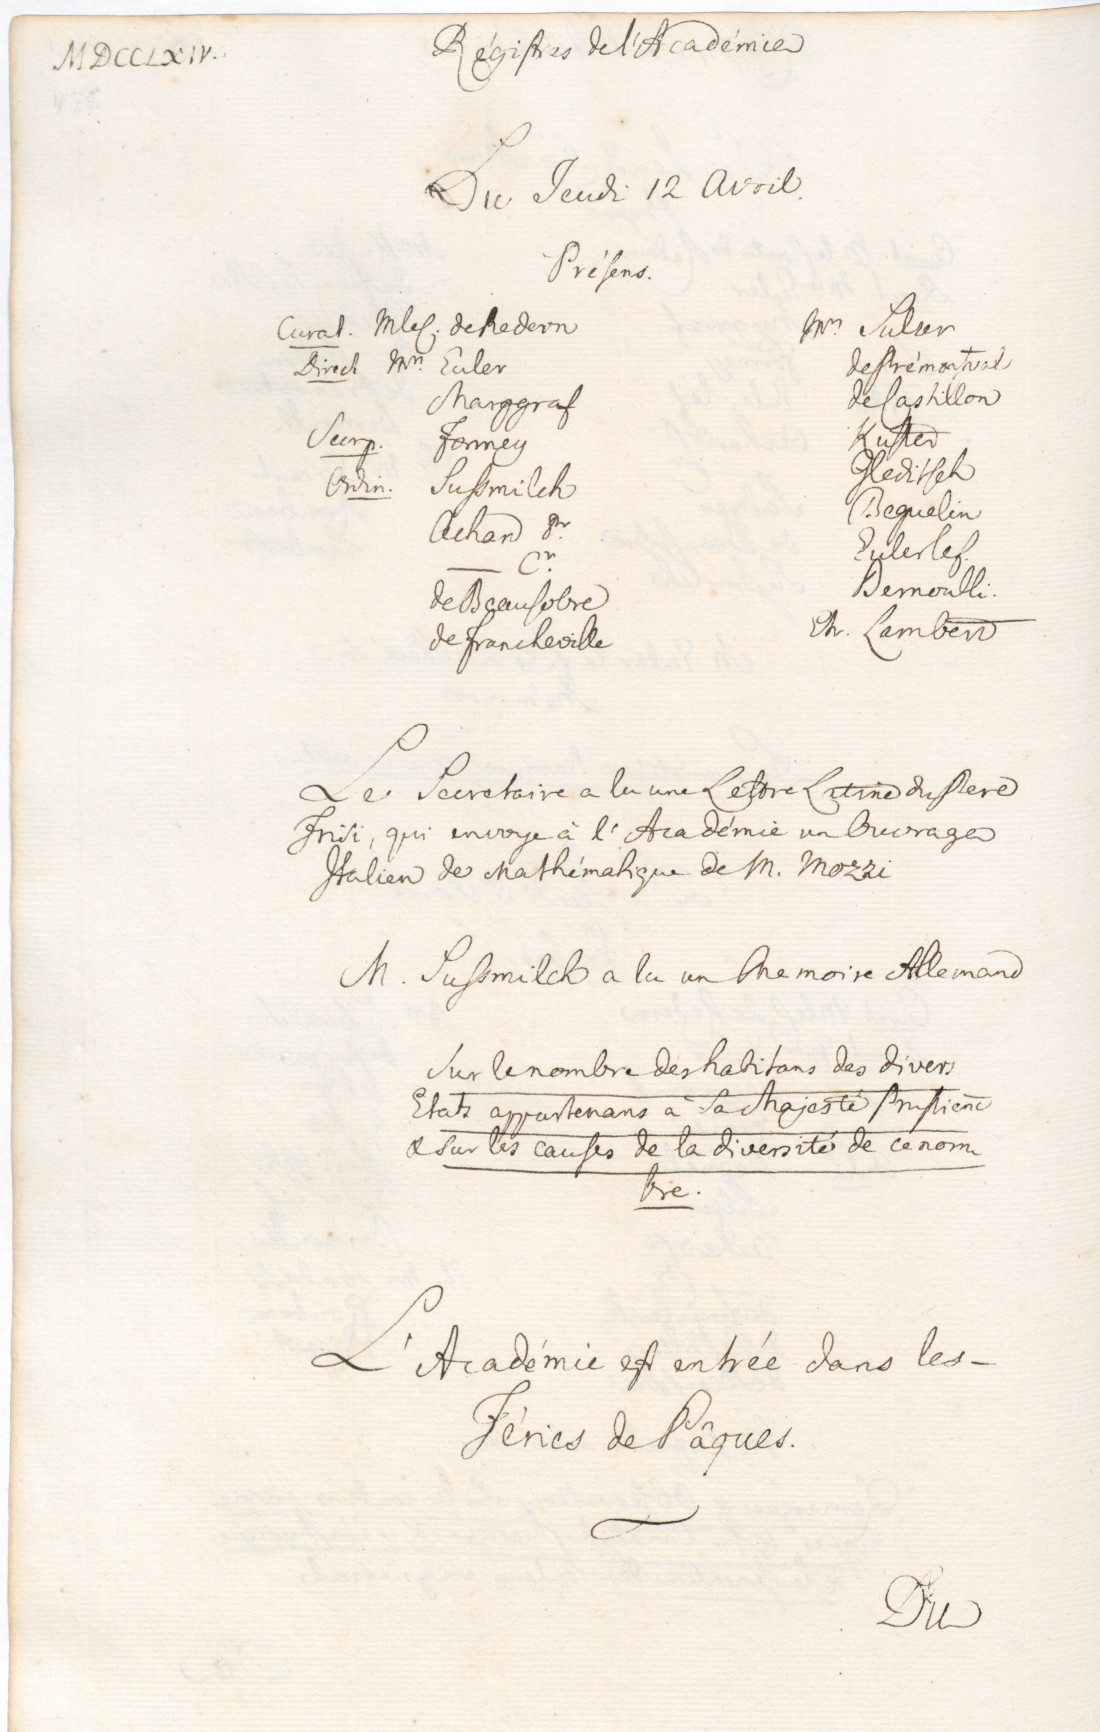 MDCCLXIV.
Régistres de l'Académie
Du Jeudi 12 Avril.
Présens.
Curat. M le C. de Redern
Direct Mrs. Euler
Marggraf
Secrp. Formey
Ordin. Sussmilch
Achard Pr.
—— Cr.
de Beausobre
de Francheville
Mrs Sulzer
de Prémontval
de Castillon
Kuster
Gleditsch
Beguelin
Euler le f.
Bernoulli.
Etr. Lambert
Le Secretaire a lu une Lettre Latine du Pere
Frisi, qui envoye à l'Académie un Ouvrage
Italien de Mathématique de M. Mozzi
M. Sussmilch a lu un Memoire Allemand
Sur le nombre des habitans des divers
Etats appartenans à Sa Majesté Prussiene
& sur les causes de la diversité de ce nom
bre.
L'Académie est entrée dans les
Féries de Pâques.
Du